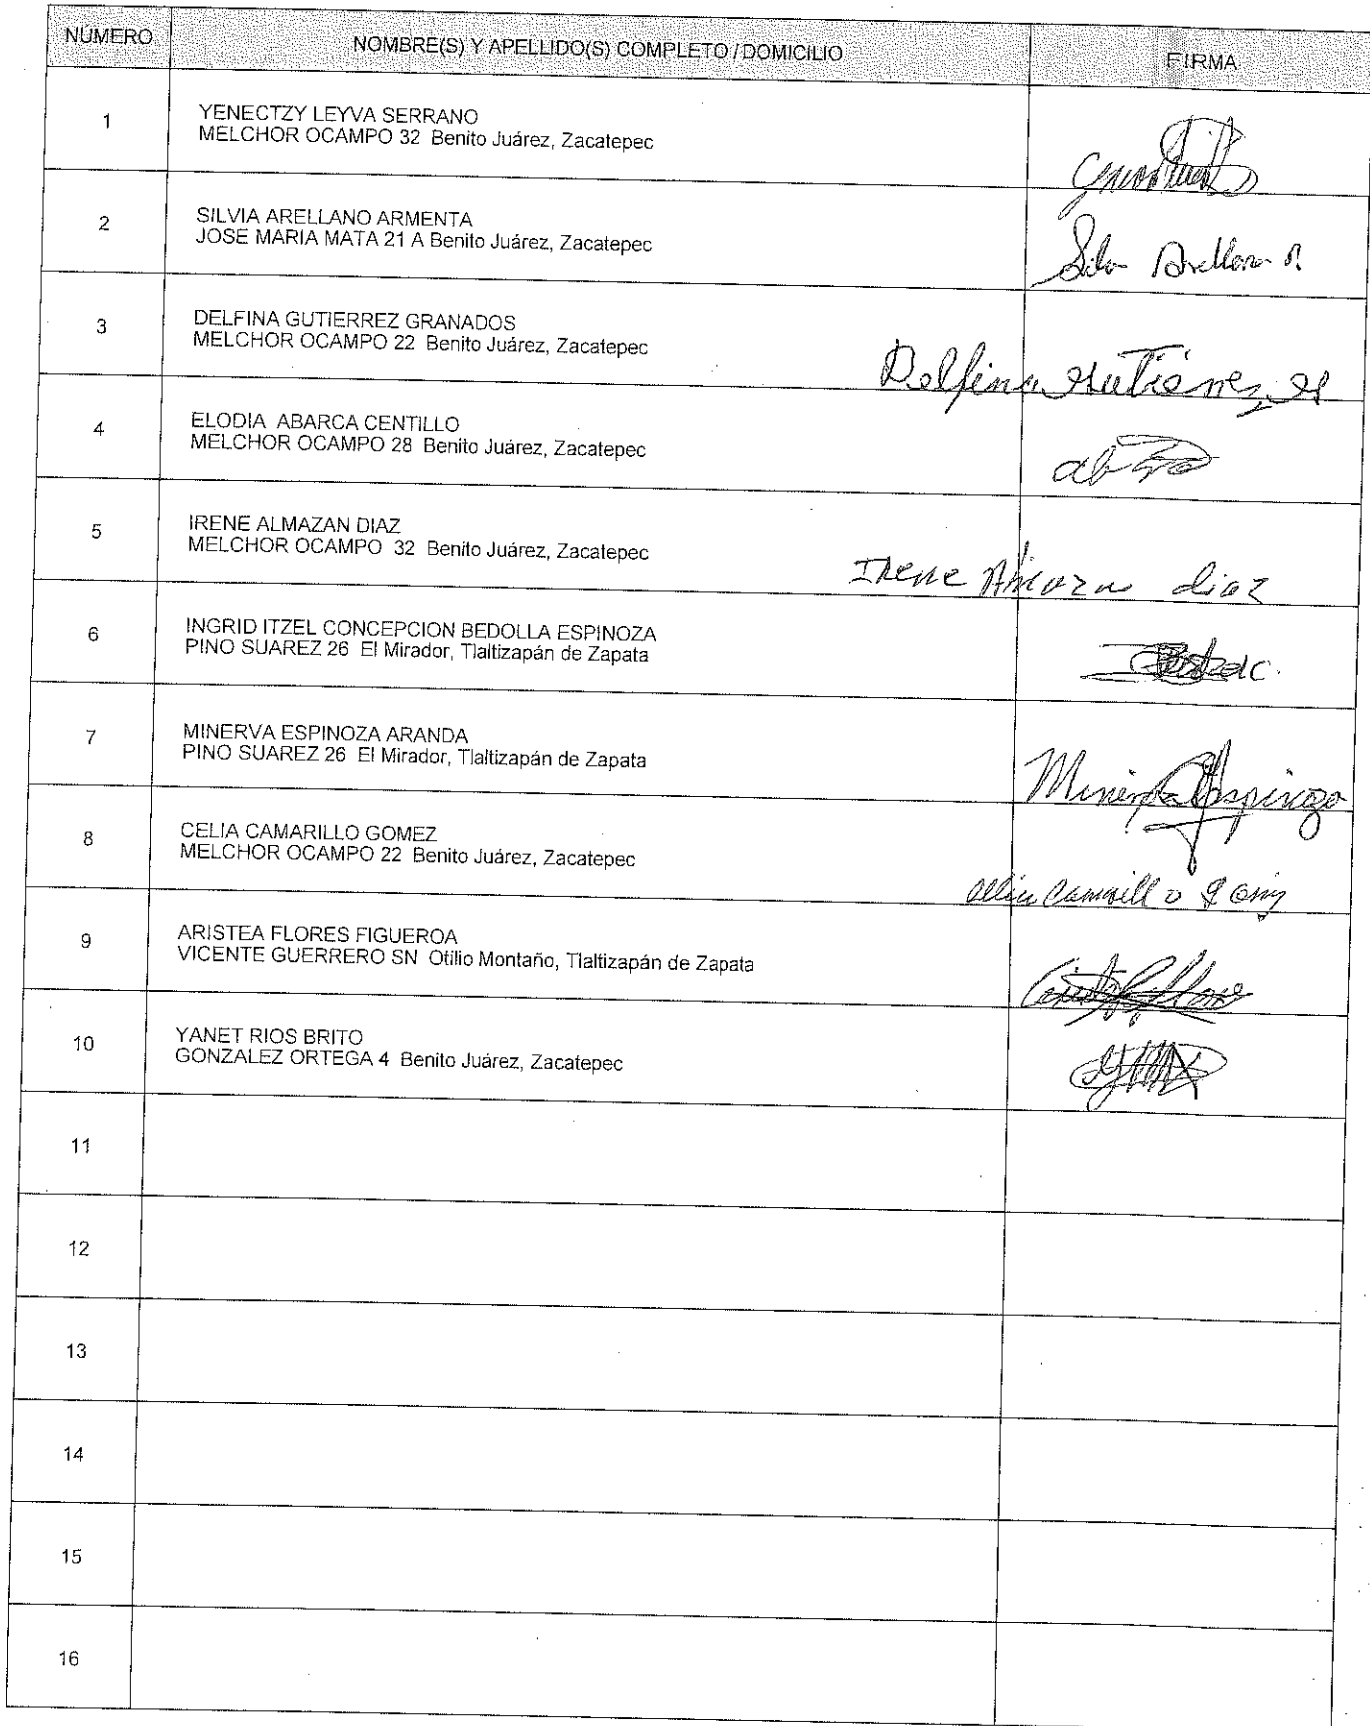 NÚMERO NOMBRE(S) Y APELLIDO(S) COMPLETO / DOMICILIO FIRMA
1 YENECTZY LEYVA SERRANO
MELCHOR OCAMPO 32 Benito Juárez, Zacatepec
2 SILVIA ARELLANO ARMENTA
JOSE MARIA MATA 21 A Benito Juárez, Zacatepec
Silvia Arellano A
3 DELFINA GUTIERREZ GRANADOS
MELCHOR OCAMPO 22 Benito Juárez, Zacatepec
Delfina Gutierrez G
4 ELODIA ABARCA CENTILLO
MELCHOR OCAMPO 28 Benito Juárez, Zacatepec
5 IRENE ALMAZAN DIAZ
MELCHOR OCAMPO 32 Benito Juárez, Zacatepec
Irene diaz
6 INGRID ITZEL CONCEPCION BEDOLLA ESPINOZA
PINO SUAREZ 26 El Mirador, Tlaltizapán de Zapata
7 MINERVA ESPINOZA ARANDA
PINO SUAREZ 26 El Mirador, Tlaltizapán de Zapata
Minerva Espinoza
8 CELIA CAMARILLO GOMEZ
MELCHOR OCAMPO 22 Benito Juárez, Zacatepec
9 ARISTEA FLORES FIGUEROA
VICENTE GUERRERO SN Otilio Montaño, Tlaltizapán de Zapata
10 YANET RIOS BRITO
GONZALEZ ORTEGA 4 Benito Juárez, Zacatepec
11
12
13
14
15
16